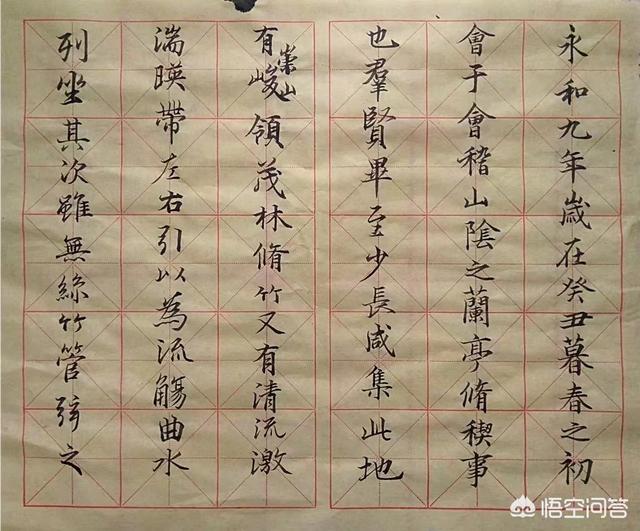 永和九年歲在癸丑暮春之初
會于會稽山陰之蘭亭脩稧事
也羣賢畢至少長咸集此地
有崇山峻領茂林脩竹又有清流激
湍暎帶左右引以為流觴曲水
列坐其次雖無絲竹管弦之
悟空问答